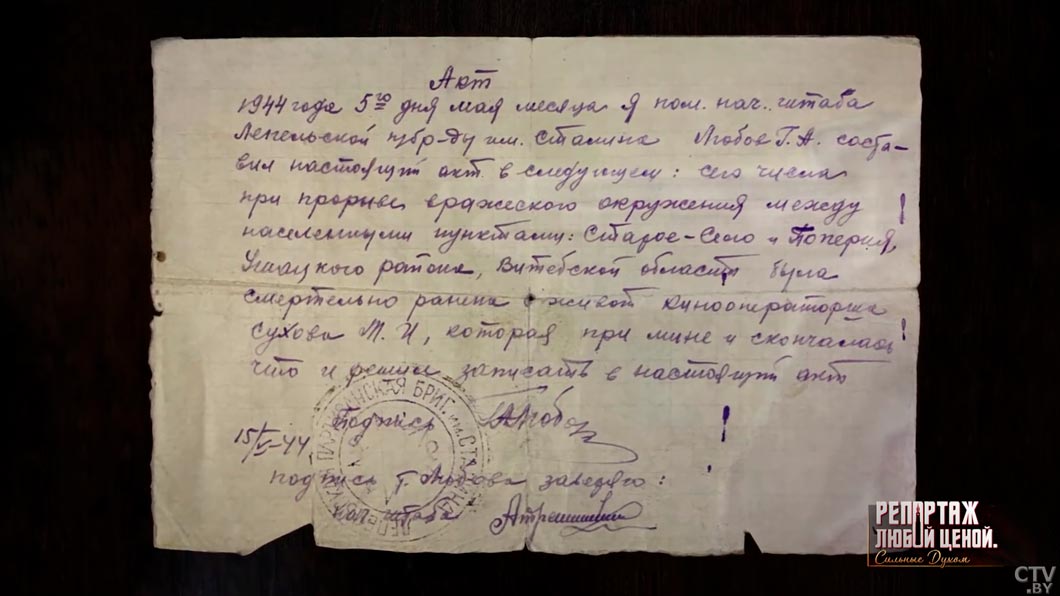 Акт
1944 года 5го дня мая месяца я пом. нач. штаба
Лепельской п/бр-ды им. Сталина Любов Г.А. соста-
вил настоящий акт в следующем: сего числа
при прорыве вражеского окружения между !
населенными пунктами: Старое-Село и Паперня,
Ушацкого района, Витебской области была
смертельно ранена в живот кинооператорша
Сухова М.И, которая при мине и скончалась !
что и решил записать в настоящий акт
Подпись !
15/V-44
подпись т. Любова заверяю:
нач штаба
ПАРТИЗАНСКАЯ БРИГ. им. СТАЛИНА
РЕПОРТАЖ
ЛЮБОЙ ЦЕНОЙ.
Сильные Духом
CTV
.BY